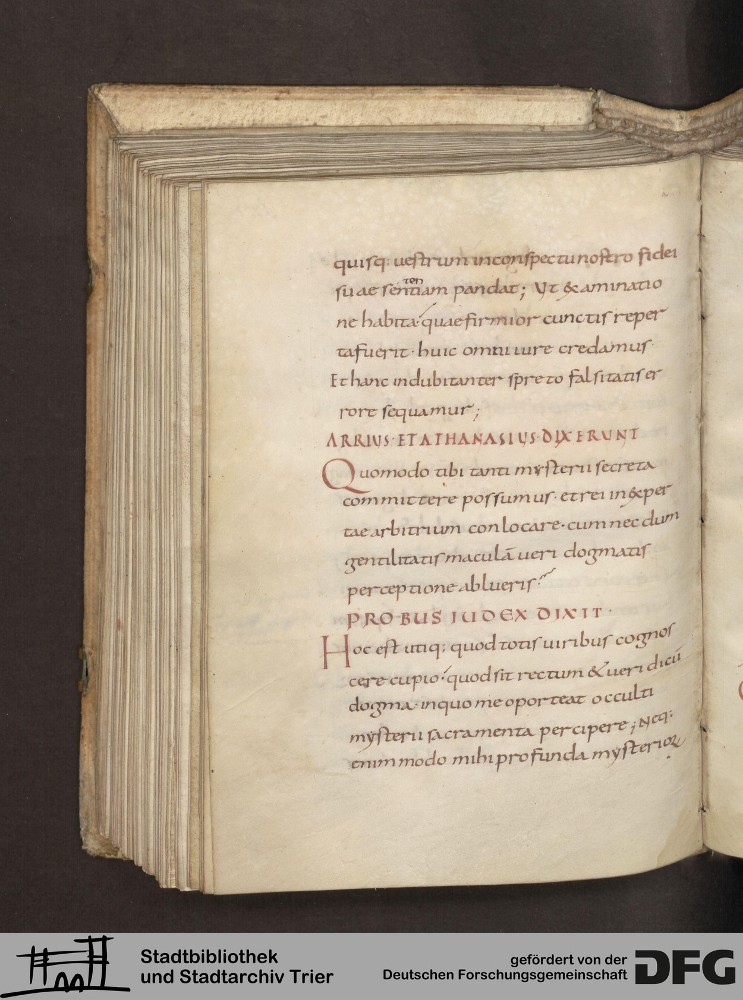 quisq; uestrum inconspectu nostro fidei
suae sententiam pandat; Ut examinatio
ne habita quae firmior cunctis reper
ta fuerit· huic omni iure credamus
Et hanc indubitanter spreto falsitatis er
rore sequamur;
ARRIUS· ET ATHANASIUS· DIXERUNT
Quomodo tibi tanti mysterii secreta
committere possumus· et rei inexper
tae arbitrium conlocare· cum nec dum
gentilitatis maculā ueri dogmatis
perceptione ablueris?
PROBUS IUDEX DIXIT·
Hoc est utiq; quod totis uiribus cognos
cere cupio· quod sit rectum & ueri dicū
dogma· in quo me oporteat occulti
mysterii sacramenta percipere; Neq;
enim modo mihi profunda mysterioꝝ
Stadtbibliothek
und Stadtarchiv Trier
gefördert von der
Deutschen Forschungsgemeinschaft
DFG